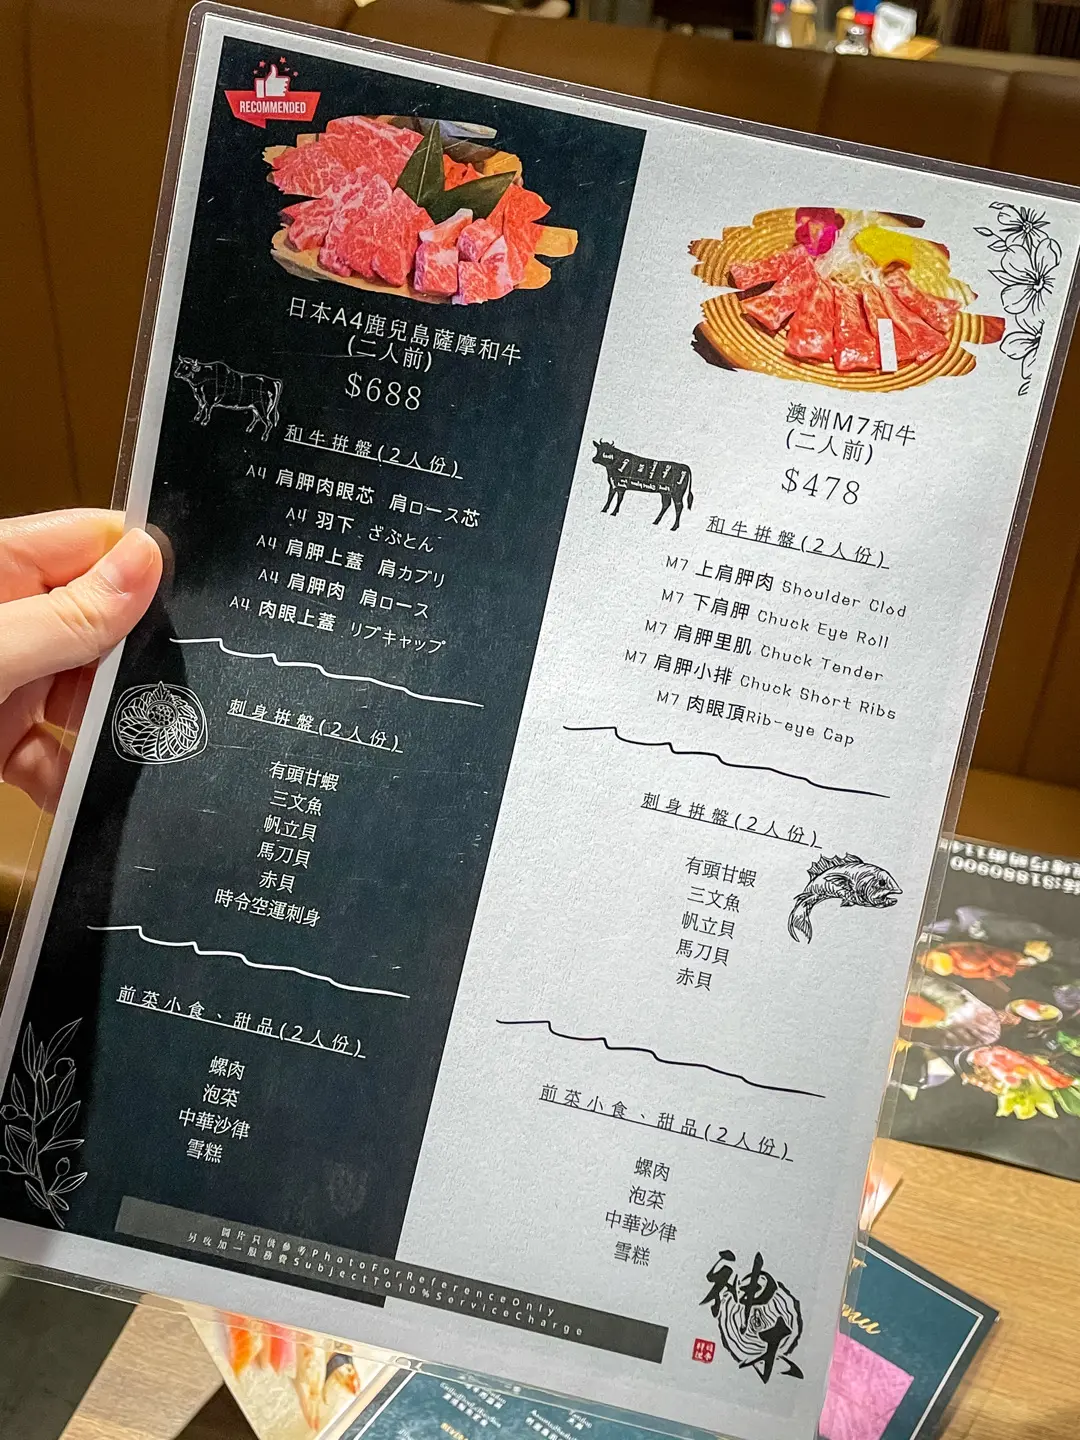 RECOMMENDED
日本A4鹿兒島薩摩和牛
(二人前)
$688
和牛拼盤(2人份)
A4 肩胛肉眼芯 肩ロース芯
A4 羽下 ざぶとん
A4 肩胛上蓋 肩カブリ
A4 肩胛肉 肩ロース
A4 肉眼上蓋 リブキャップ
刺身拼盤(2人份)
有頭甘蝦
三文魚
帆立貝
馬刀貝
赤貝
時令空運刺身
前菜小食、甜品(2人份)
螺肉
泡菜
中華沙律
雪糕
澳洲M7和牛
(二人前)
$478
和牛拼盤(2人份)
M7 上肩胛肉 Shoulder Clod
M7 下肩胛 Chuck Eye Roll
M7 肩胛里肌 Chuck Tender
M7 肩胛小排 Chuck Short Ribs
M7 肉眼頂Rib-eye Cap
刺身拼盤(2人份)
有頭甘蝦
三文魚
帆立貝
馬刀貝
赤貝
前菜小食、甜品(2人份)
螺肉
泡菜
中華沙律
雪糕
圖片只供參考PhotoForReferenceOnly
另收加一服務費SubjectTo10%ServiceCharge
神木